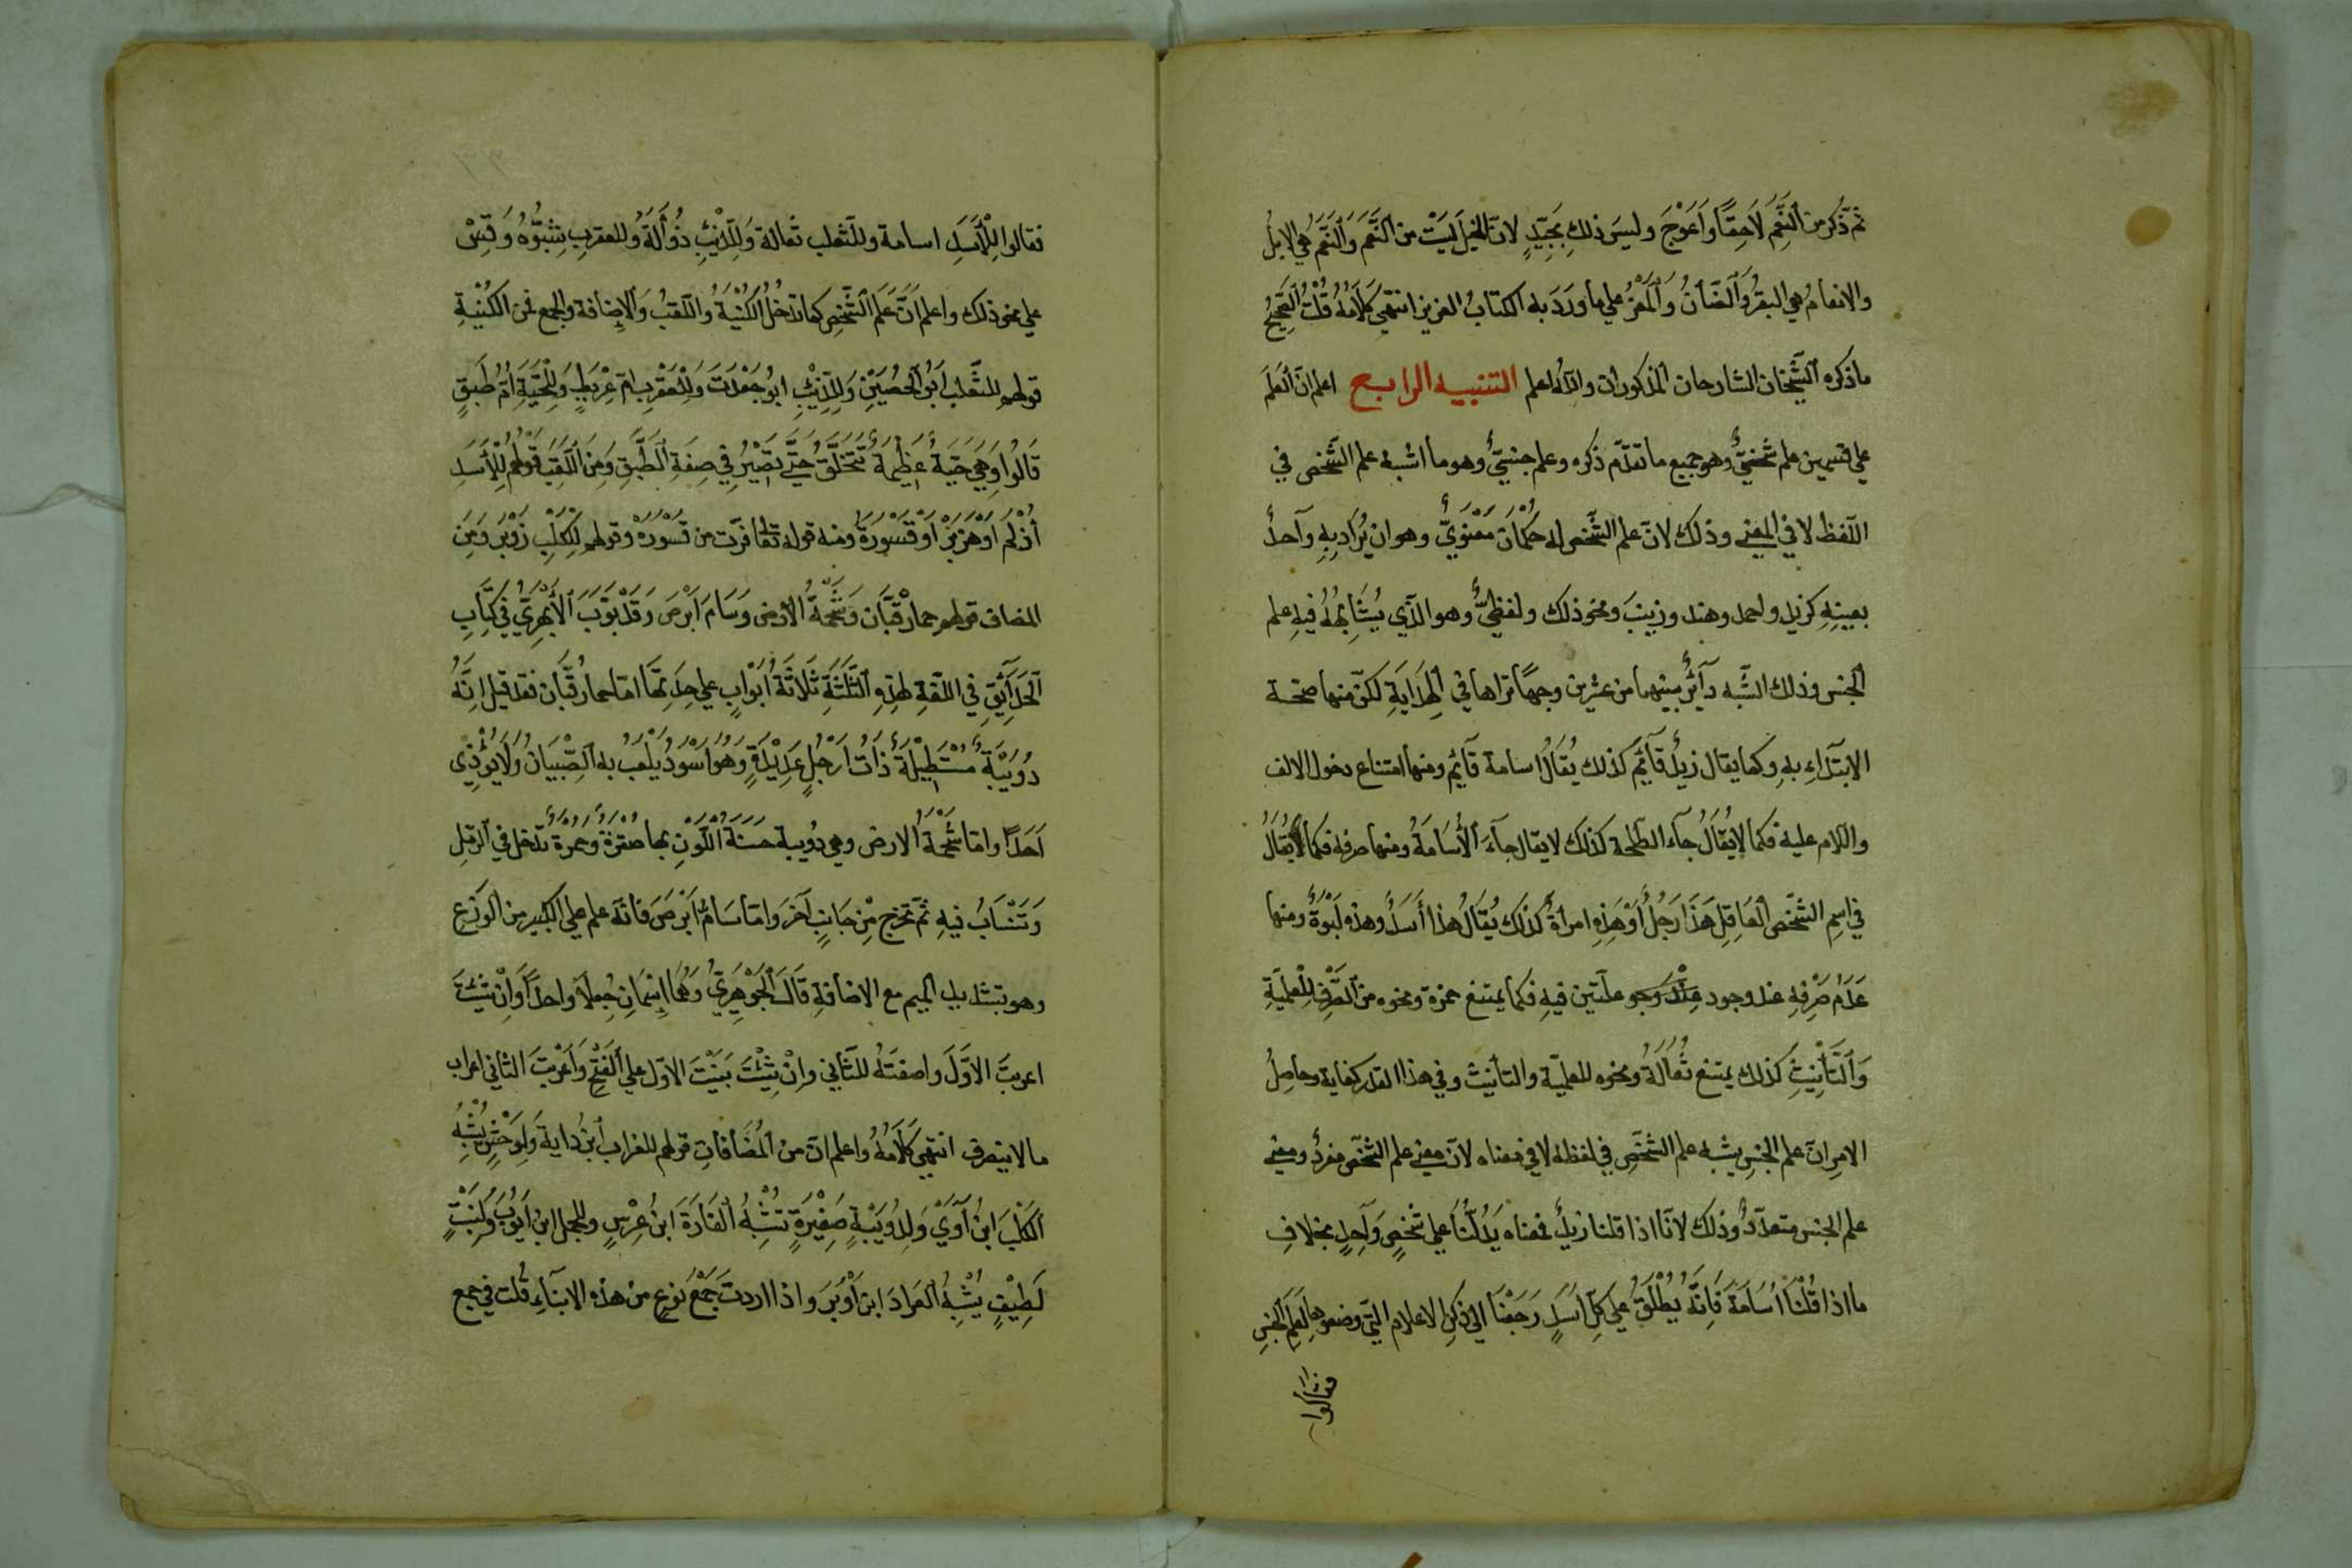 ثمّ ذكر من النَّعَم لَاحِقًا وَاَعْوَجَ وليسَ ذلك بِجَيِّدٍ لانّ الخيل لَيْسَتْ من النَّعَم وَالنَّعَم هي الابلُ
والانعامُ هي البقرُ وَالضّأنُ وَالْمَعْزُ علي ما وَرَدَ به الكتابُ العزيز انتهي كَلَامُهُ قُلْتُ الصَّحِيْحُ
ما ذكره الشَّيْخَان الشارحان المذكوران والله اعلم التنبيه الرابع اعلم انّ العَلَمَ
علي قسمين علم شَخْصِيٌّ وهو جميع ما تقدّم ذكره وعلم جنسيٌّ وهو ما اشبه علم الشَّخص في
اللّفظ لا في المعني وذلك لانّ علم الشَّخص له حُكْمَان مَعْنَوِيٌّ وهو ان يُرَاد بِهِ وَاحدٌ
بعينِهِ كزيد واحمد وهند وزينبَ ونحو ذلك ولفظيٌّ وهو الّذي يُشَابِهُهُ فيهِ علم
الجنس وذلك الشَّبه دآئرٌ بينهما من عشرين وجهًا تراها في الْهِدَايَةِ لكنّ منها صحّة
الابتدآءِ بهِ وكما يقال زيدٌ قآئم كذلك يُقَالُ اسامة قآئم ومنها امتناع دخول الالف
واللام عليه فكما لا يُقَالُ جآء الطلحة كذلك لا يقال جآءَ الْأُسَامَةُ ومنها صرفه فكما يُقَالُ
في اسِمِ الشَّخص العَاقِلِ هَذَا رَجُلٌ أَوْ هَذِهِ امرأة كذلك يُقَالُ هذا أَسَدٌ وهذه لَبْوَةٌ ومنها
عَدَمُ صَرْفِهِ عند وجود علّتين فيهِ فكما يمتنع حمزة ونحوه من الصَّرْفِ لِلْعلمِيّةِ
وَالتَّأْنِيْثِ كذلك يمتنع ثُعَالَةُ ونحوه للعلميّة والتأنيث وفي هذا القدر كفاية وحاصِلُ
الامرانّ علم الجنسِ يشبه علم الشَّخصِ في لفظه لا في معناه لانّ معني علم الشّخص مفردٌ ومعني
علم الجنس متعدّدٌ وذلك لانّا اذا قلنا زيدٌ فمعناه يَدُلّنَا علي شَخصٍ وَاحِدٍ بخلافِ
ما اذا قُلْنَا اُسَامَةَ فَاِنَّهُ يُطْلَقُ علي كلّ اَسَدٍ رَجَعْنَا الي ذكر الاعلام الّتي وضعوها لِعَلَمِ الجنسِ
فقالوا
فقالوا لِلْاَسَدِ اسامة وللثعلب ثعالة وَلِلذّئبِ ذُوأَلَةُ وللعقرب شبْوَةُ وَقِسْ
علي نحو ذلك واعلم اَنَّ عَلَمَ الشَّخصِ كما تدخُلُ الكُنْيَةُ وَاللّقبُ وَالاِضافة والجمع فمن الكُنْيةِ
قولهم للثَّعْلَب اَبُو الحُصَيْنِ وَلِلذِّئْبِ ابو جَعْدَةَ وَلِلْعَقْرَب اُمّ عِرْيَطٍ وَلِلْحَيّةِ اُمّ طَبَقٍ
قَالُوا وَهِيَ حَيّةٌ عَظِيْمَةٌ تَتَحَلَّقُ حَتّي تَصِيْرُ فِي صِفَةِ الطَّبَقِ وَمِنَ اللَّقَبِ قَوْلُهُمْ لِلْاَسَدِ
أَدْلَمُ اَوْ هَزْبَرٌ اَوْ قَسْوَرَةٌ ومنه قوله تعالي فرّت من قَسْوَرَه وقولهم لِلْكَلْبِ زَوْبَرٌ وَمِنَ
المضاف قولهم حمار قَبَّان وَشَحْمَةُ الارض وَسَامَ اَبْرَصَ وَقَدْ بَوّبَ الْاَبْهَرِيُّ فِي كِتَابِ
الْحَدَآئِقِ فِي اللّغةِ لهذِهِ الثَّلَثَةِ ثَلاثَةَ اَبْوَابٍ علي حِدَتِهَا امّا حمار قُبَّان فقد قيل اِنَّهُ
دُوَيْبَّةٌ مُسْتَطِيْلَةٌ ذَاتُ اَرْجُلٍ عَدِيْدَةٍ وَهُوَ اَسْوَدُ يَلْعَبُ به الصِّبْيَانُ وَلَا يُؤْذِي
اَحَدًا وامّا شَحْمَةُ الارض وهي دُويبة حسنةُ اللَّوْنِ بها صُفْرَةٌ وَحُمرةٌ تدخل في الرّملِ
وَتَنْسَابُ فيهِ ثمّ تخرج مِنْ جَانِبٍ آخرَ وامّا سَامُّ اَبْرَصَ فانّه علم علي الكبير من الوَزَغِ
وهو بتشديد الميم مع الاضافةِ قَالَ الْجَوْهَرِيُّ وَهُمَا اسْمَانِ جُعِلَا واحدًا وَاِنْ شِئْتَ
اعربتَ الاوَّلَ واضفتَهُ للثّاني وَاِنْ شِئْتَ بَنَيْتَ الاوّل علي الْفَتْحِ وَاَعْرَبْتَ الثاني اعراب
ما لا ينصرف انتهي كَلَامُهُ واعلم انّ من الْمُضَافَاتِ قولهم للغراب ابنُ داية وَلِوَحْشٍ يُشْبِهُ
الْكَلْبَ ابنُ آوَيْ وَلِدُوَيْبَّةٍ صَغِيْرَةٍ تُشْبِهُ الْفَارَةَ ابنُ عِرْسٍ وللجمل ابنُ اَيّوبَ وَلِنَبْتٍ
لَطِيْفٍ يُشْبِهُ الْعَرَادَ ابنُ اَوْبَرَ واذا اردتَ جَمْعَ نوعٍ من هذه الابنآءِ قُلت في جمع